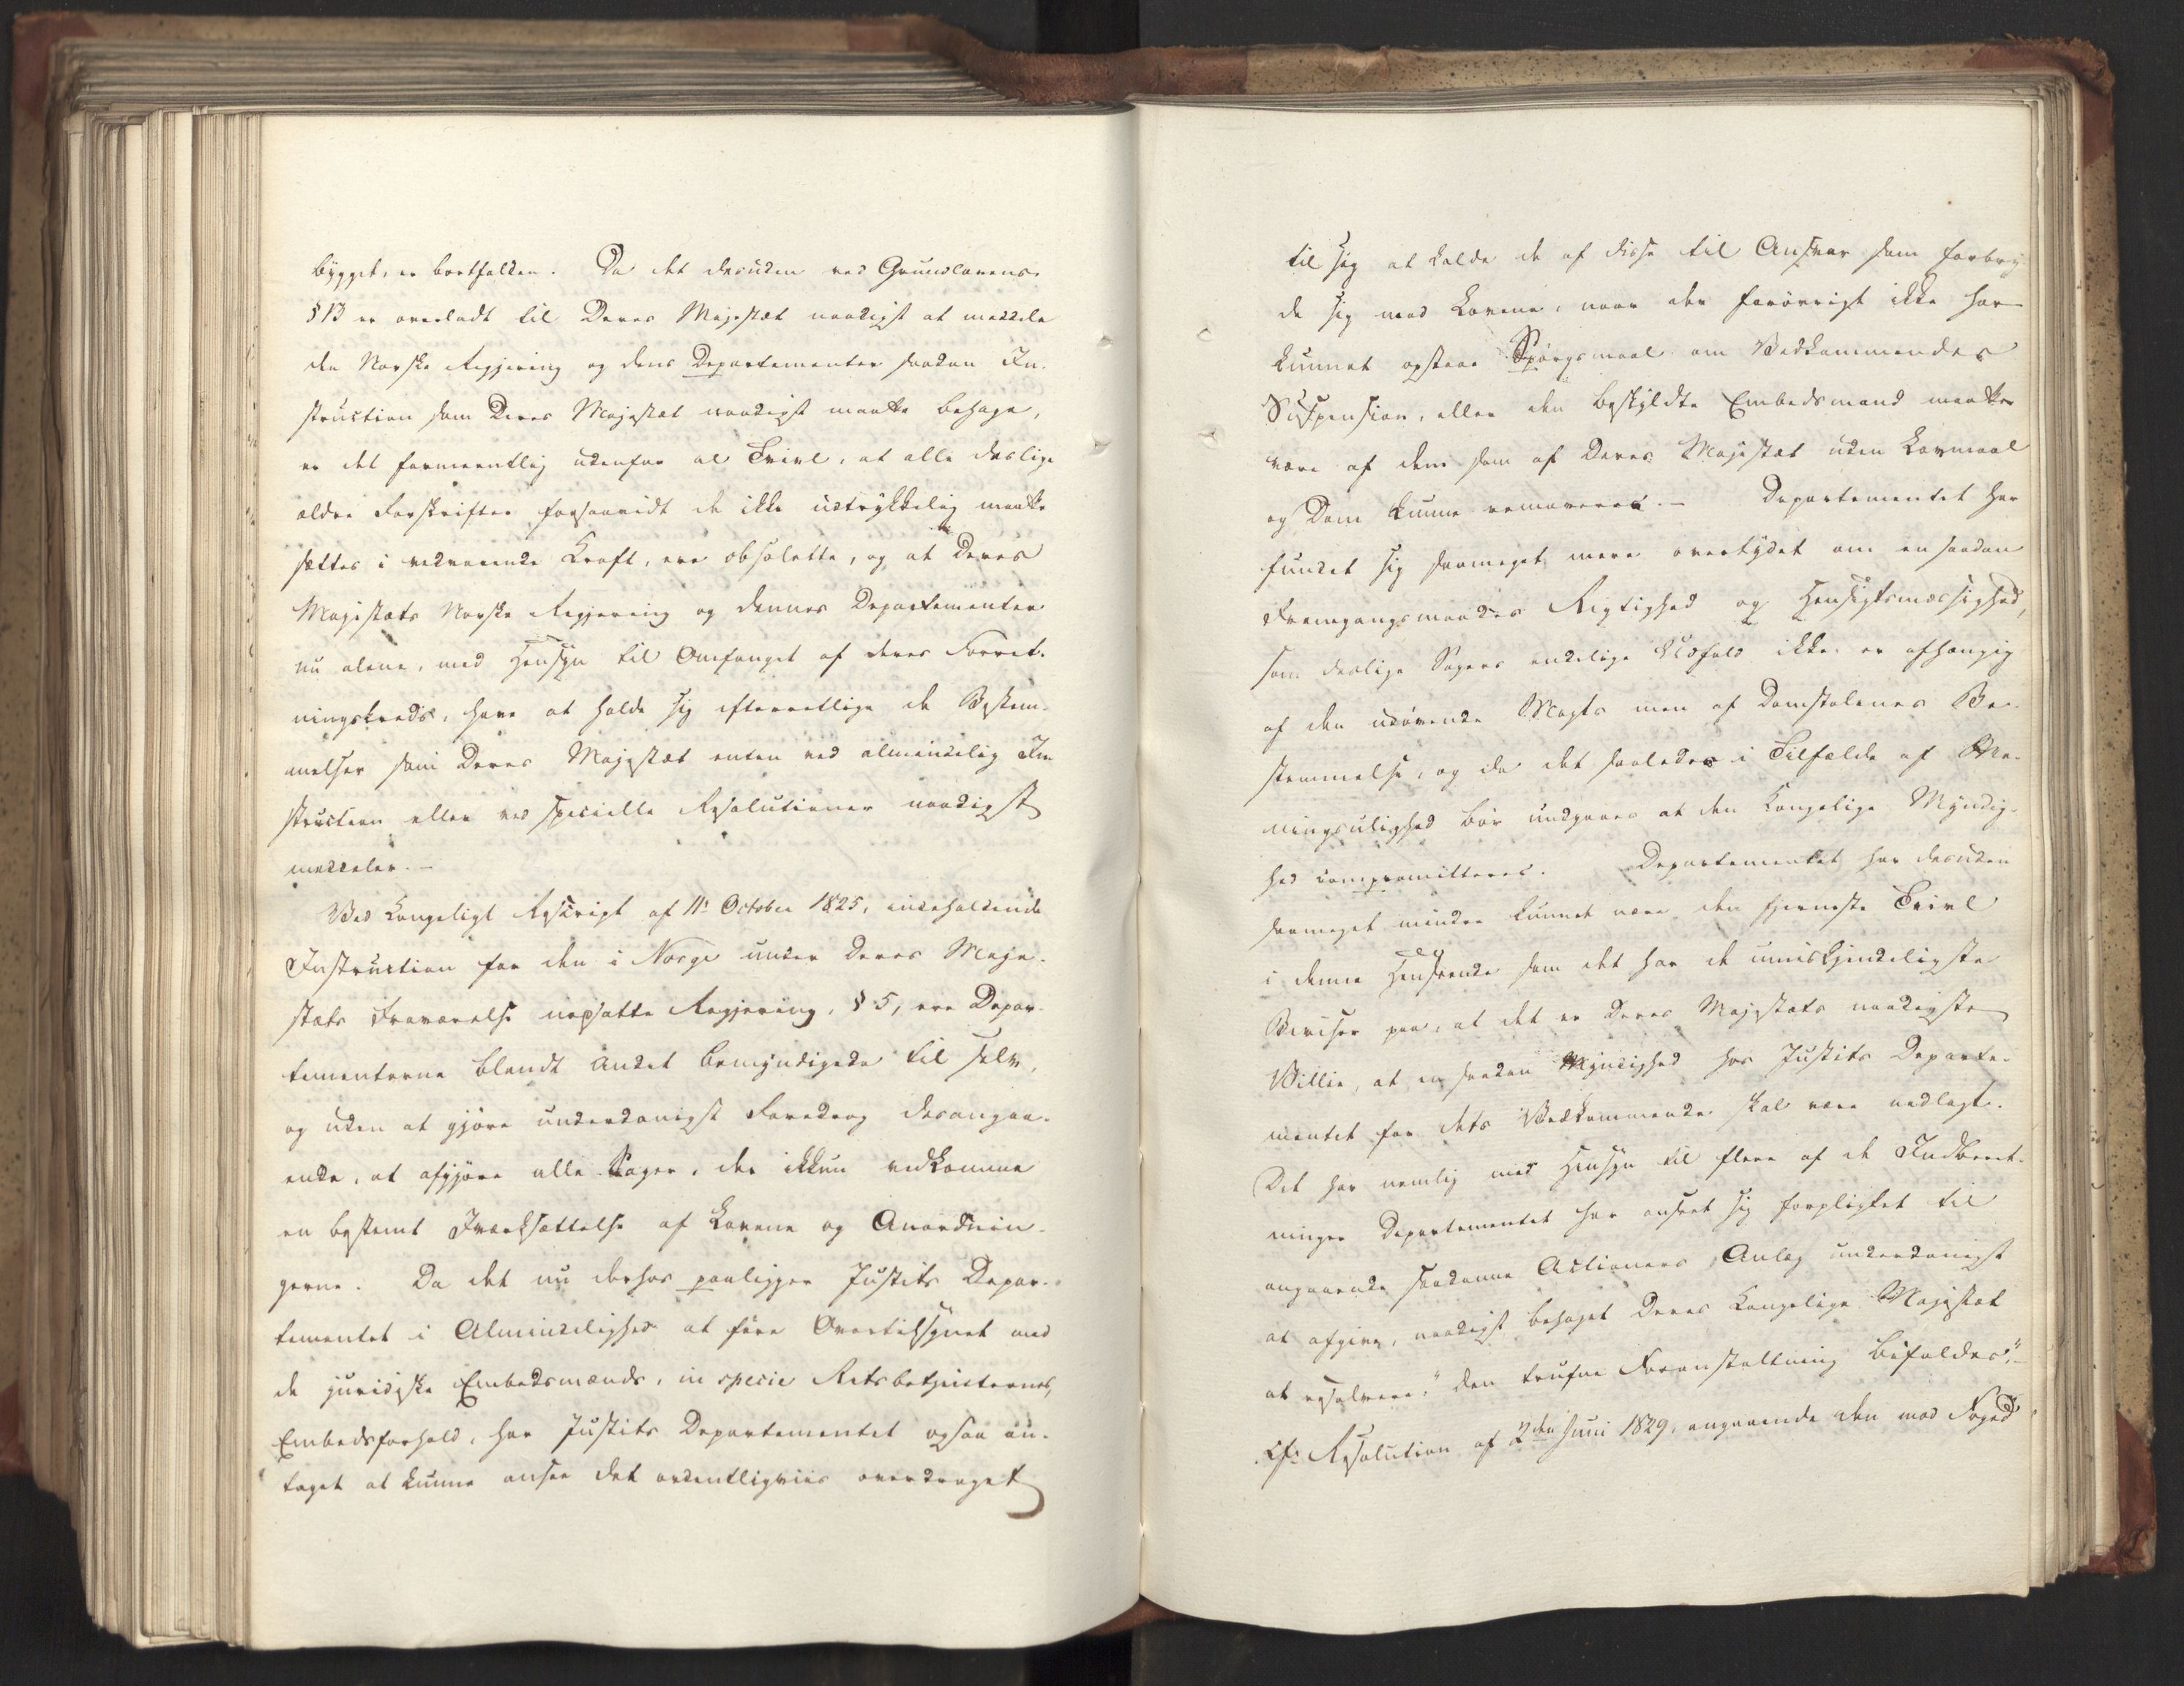 bygget, er bortfalden. Da det desuden ved Grundlovens
§ 13 er overladt til Deres Majestæt naadigst at meddele
den Norske Regjering og dens Departementer saadan In-
struction som Deres Majestæt naadigst maatte behage,
er det formeentlig udenfor al Tvivl, at alle deslige
ældre Forskrifter forsaavidt de ikke udtrykkelig maatte
sættes i vedvarende Kraft, ere obsolette, og at Deres
Majestæts Norske Regjering og dennes Departementer
nu alene, med Hensyn til Omfanget af deres Forret-
ningskreds, have at holde sig efterrettlige de Bestem-
melser som Deres Majestæt enten ved almindelig In-
struction eller ved specielle Resolutioner naadigst
meddeler.-
Ved Kongeligt Rescript af 11te October 1825, indeholdende
Instruction for den i Norge under Deres Maje-
stæts Fraværelse nedsatte Regjering, § 5, ere Depar-
tementerne blandt andet bemyndigede til selv,
og uden at gjøre underdanigst Foredrag desangaa-
ende, at afgjøre alle Sager, der ikkun vedkomme
en bestemt Iværksættelse af Lovene og Anordnin-
gerne. Da det nu derhos paaligger Justits Depar-
tementet i Almindelighed at føre Overtilsynet med
de juridiske Embedsmænds, in specie Retsbetjenternes,
Embedsforhold, har Justits Departementet ogsaa an-
taget at kunne ansee det ordentligviis overdraget
til sig at kalde de af disse til Ansvar som forbry-
de sig mod Lovene, naar der forøvrigt ikke har
kunnet opstaae Spørgsmaal om Vedkommendes
Suspension, eller den beskyldte Embedsmand maatte
være af dem som af Deres Majestæt uden Lovmaal
og Dom kunne removeres.- Departementet har
fundet sig saameget mere overtydet om en saadan
Fremgangsmaades Rigtighed og Hensigtsmæssighed,
som deslige Sagers endelige Udfald ikke er afhængig
af den udøvende Magts men af Domstolenes Be-
stemmelse, og da det saaledes i Tilfælde af Me-
ningsulighed bør undgaaes at den Kongelige Myndig-
hed compromitteres. Departementet har desuden
saameget mindre kunnet nære den fjerneste Tvivl
i denne Henseende som det har de umiskjendeligste
Beviser paa, at det er Deres Majestæts naadigste
Villie, at en saadan Myndighed hos Justits Departe-
mentet for dets Vedkommende skal være nedlagt.
Det har nemlig med Hensyn til flere af de Indberet-
ninger Departementet har anseet sig forpligtet til
angaaende saadanne Actioners Anlæg underdanigst
at afgive, naadigst behaget Deres Kongelige Majestæt
at resolvere: "den trufne Foranstaltning bifaldes".-
cfr. Resolution af 2den Juni 1829, angaaende den mod Foged